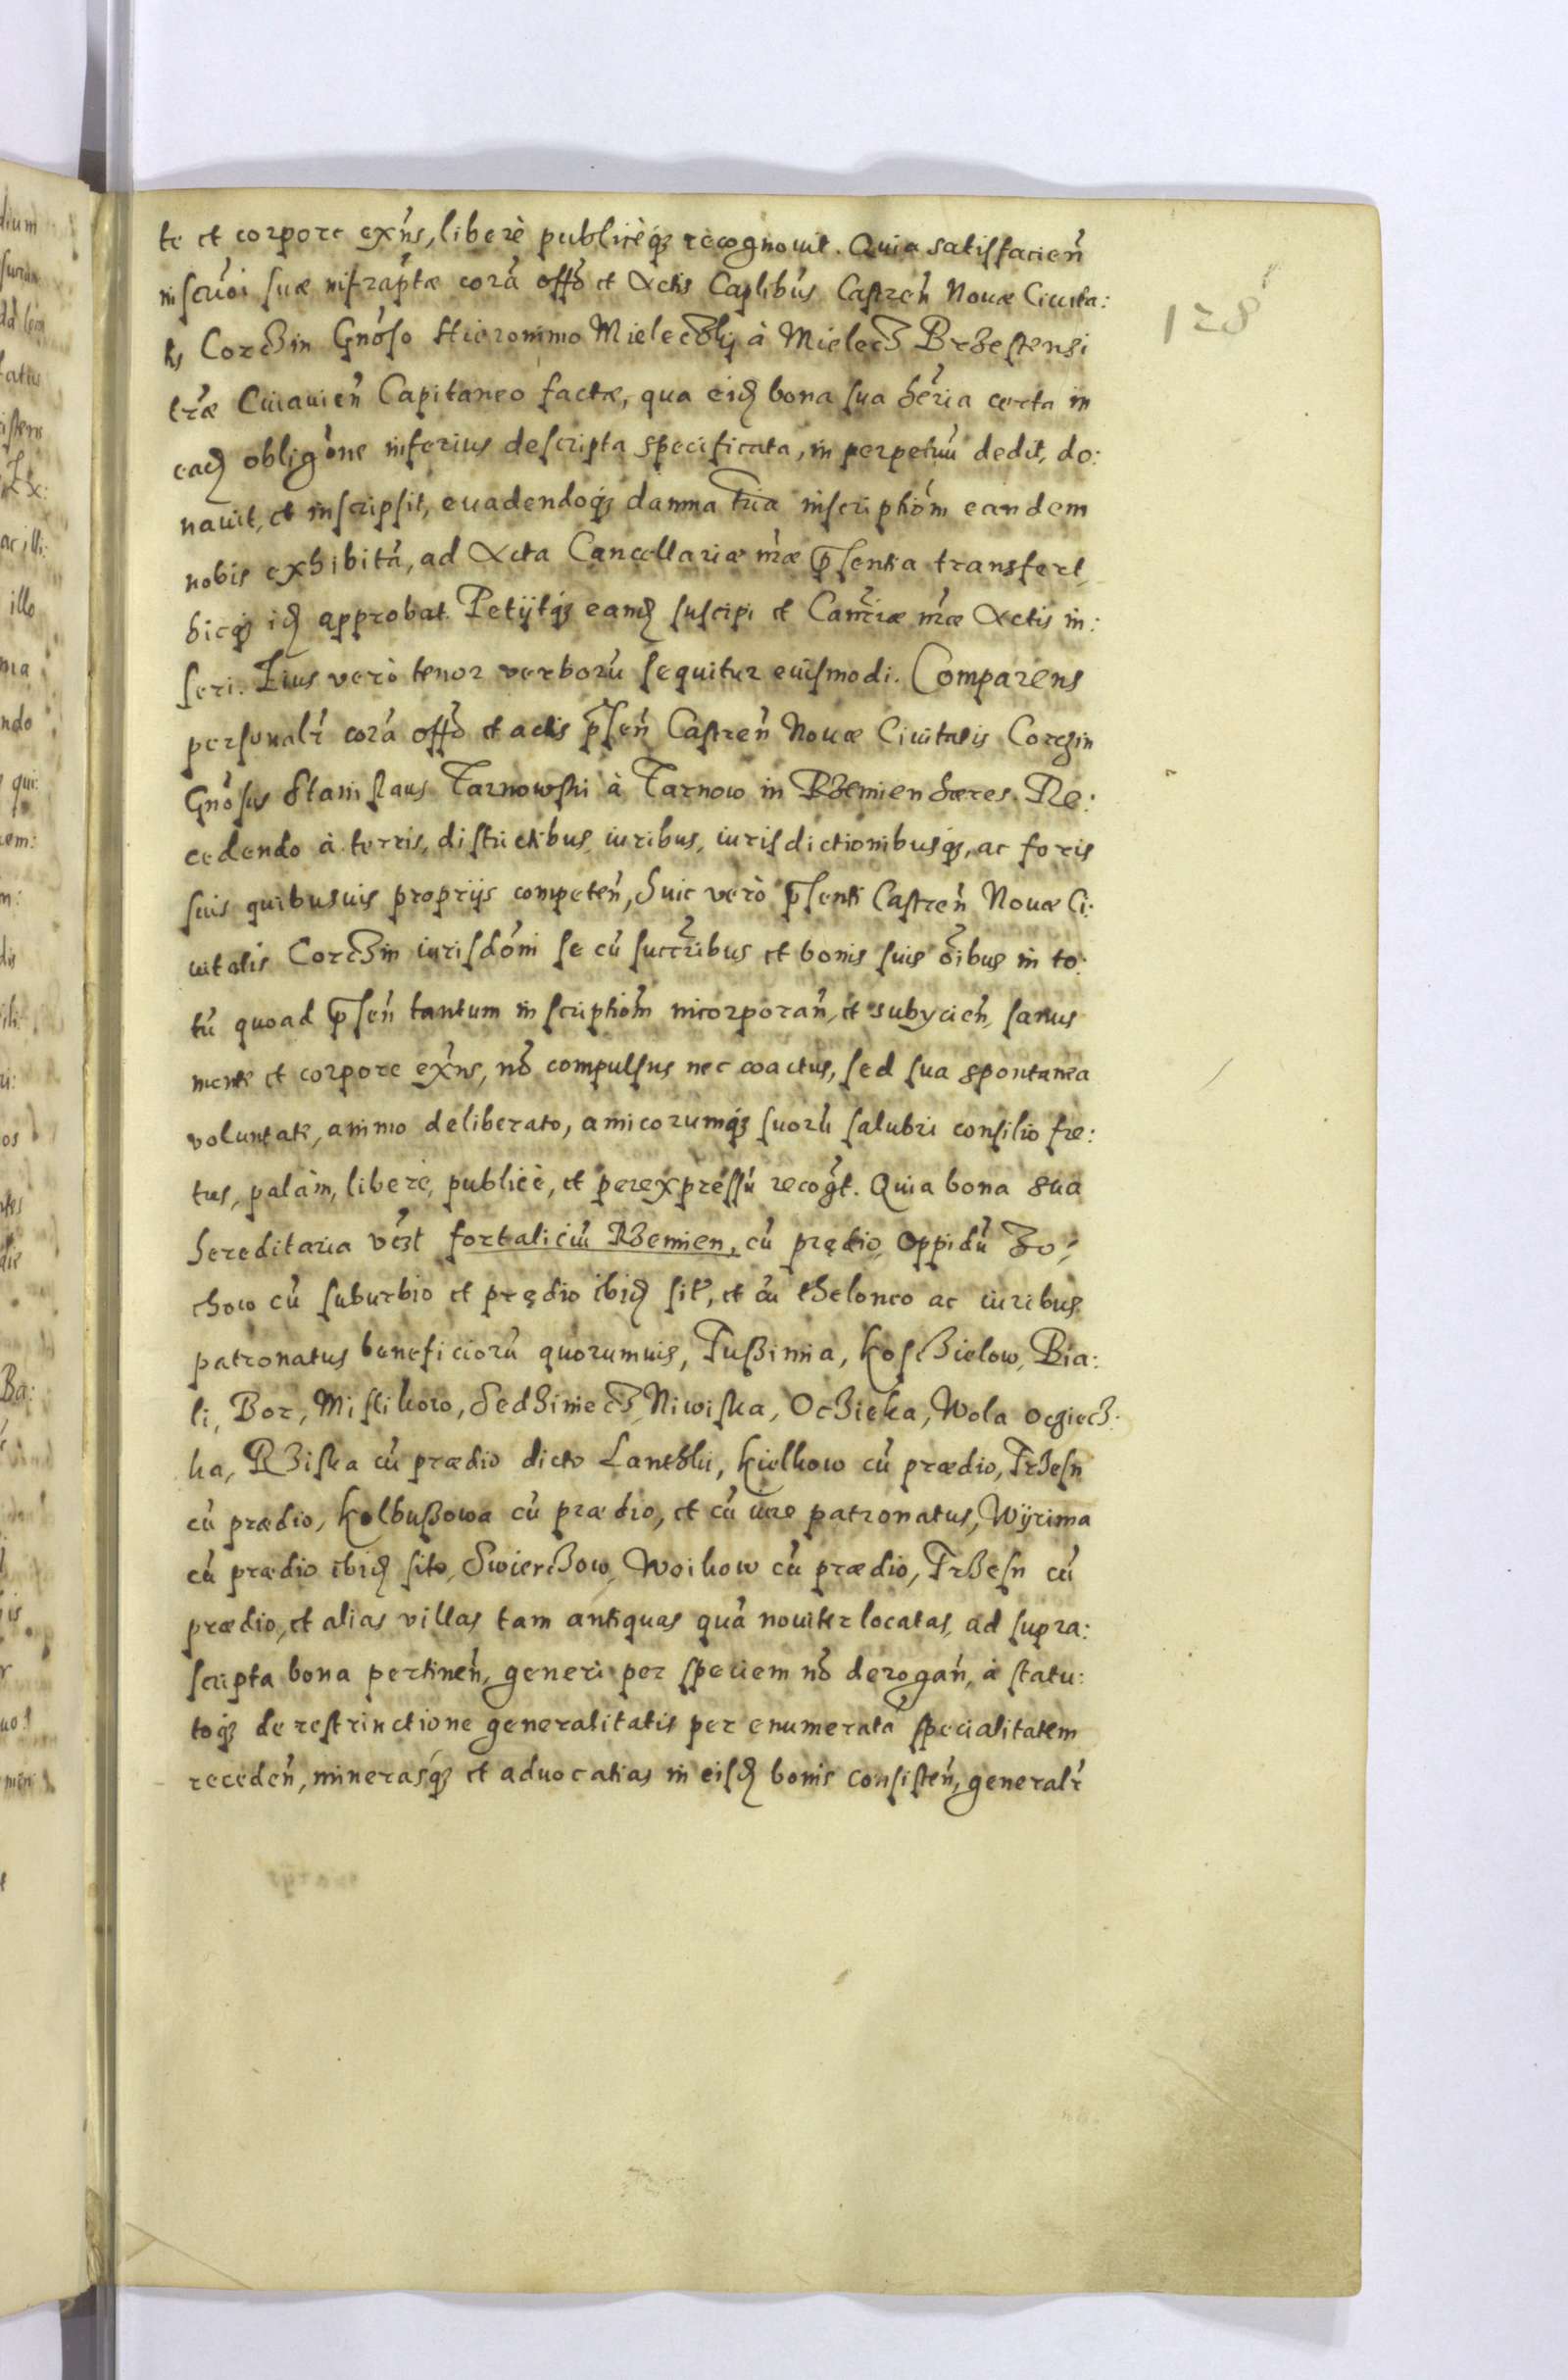 te et corpore exn̄s, liberè publicèq₃ recognouit. Quia satisfacień
inscr̄oi suæ infraptæ corã offō et Actis Caplibūs Castreń Nouæ Ciuita:
tis Corczin Gnōso Hieronimo Mieleczkij à Mielecz Brzestensi
tr̄æ Cuiauień Capitaneo factæ, qua eid. bona sua hæria certa in
ead. obligōne inferius descripta specificata, in perpetuũ dedit, do:
nauit, et inscripsit, euadendoq₃ damna tria inscriptiōm eandem
nobis exhibitã, ad Acta Cancellariæ nr̄æ p̄sentia transfert,
hicq₃ id. approbat. Petijtq₃ eamd. suscipi et Cancr̄iæ nr̄æ Actis in:
seri. Eius verò tenor verborũ sequitur euismodi. Comparens
personalr̄ corã offō et actis p̄seń Castreń Nouæ Ciuitatis Corczin
Gnōsus Stanislaus Tarnowski à Tarnow in Rzemien hæres. Re:
cedendo à terris, districtibus, iuribus, iurisdictionibusq₃, ac foris
suis quibusuis proprijs competeń, huic verò p̄senti Castreń Nouæ Ci:
uitatis Corczin iurisdōni se cũ succr̄ibus et bonis suis ōibus in to:
tũ quoad p̄seń tantum inscriptiōm incorporań, et subycień, sanus
mente et corpore exn̄s, nō compulsus nec coactus, sed sua spontanea
voluntate, animo deliberato, amicorumq₃ suorũ salubri consilio fre:
tus, palàm, liberè, publicè, et perexpressũ recogt. Quia bona sua
hereditaria vczt fortaliciũ Rzemien, cũ prędio, oppidũ Zo:
chow cũ suburbio et prędio ibid. sit, et cũ theloneo ac iuribus
patronatus beneficiorũ quorumuis, Tussinia, Kosczielow, Bia:
li, Bor, Mislikow, Sedzimecz, Niwiska, Oczieka, Wola Ocziecz:
ka, Rziska cũ prædio dicto Lantzki, Kielkow cũ prædio, Trzesn
cũ prædio, Kolbussowa cũ prædio, et cũ iure patronatus, Wyrinia
cũ prædio ibid. sito, Swierczow, Woikow cũ prædio, Trzesn cũ
prædio, et alias villas tam antiquas quã nouiter locatas, ad supra:
scripta bona pertineń, generi per speciem nō derogań, à statu:
toq₃ de restrinctione generalitatis per enumeratã specialitatem
recedeń, minerasq₃ et aduocatias in eisd. bonis consisteń, generalr̄
128